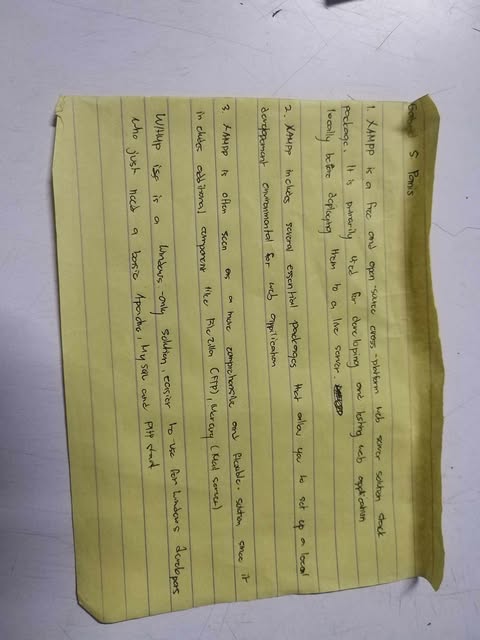 S Paris
1. XAMPP is a free and open-source cross-platform web server solution stack
package. It is primarily used for developing and testing web application
locally before deploying them to a live server.
2. XAMPP includes several essential packages that allow you to set up a local
development environmental for web application
3. XAMPP is often seen as a more comprehensive and flexible. solution since it
includes additional component like FileZilla (FTP), Mercury (Mail server)
WAMP is a Windows-only solution, easier to use for Windows developers
who just need a basic Apache, MySQL and PHP